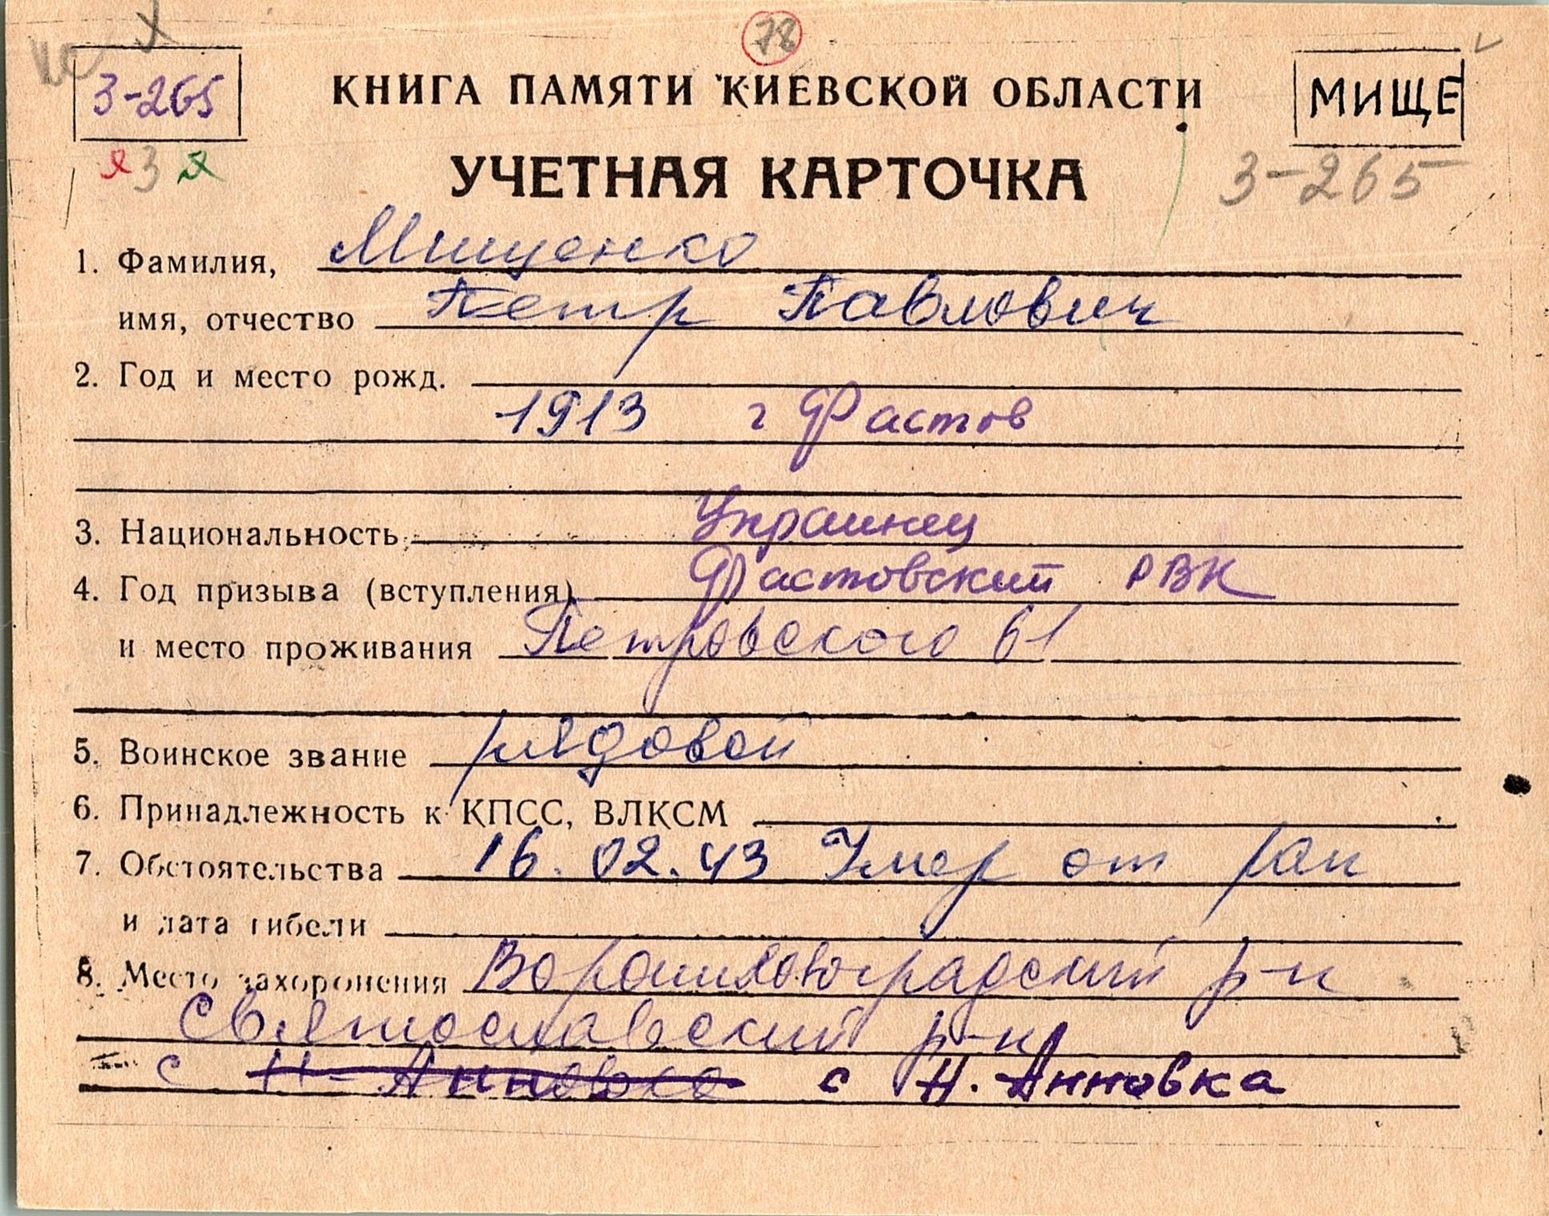 78
3-265
КНИГА ПАМЯТИ КИЕВСКОЙ ОБЛАСТИ
МИЩЕ
З
УЧЕТНАЯ КАРТОЧКА
3-265
1. Фамилия, Мищенко
имя, отчество Петр Павлович
2. Год и место рожд.
1913 г Фастов
3. Национальность Украинец
4. Год призыва (вступления) Фастовский РВК
и место проживания Петровского 61
5. Воинское звание рядовой
6. Принадлежность к КПСС, ВЛКСМ
7. Обстоятельства 16.02.43 Умер от ран
и дата гибели
8. Место захоронения Ворошиловградский р-н
Святославский р-н
с Н-Анновка с Н. Анновка